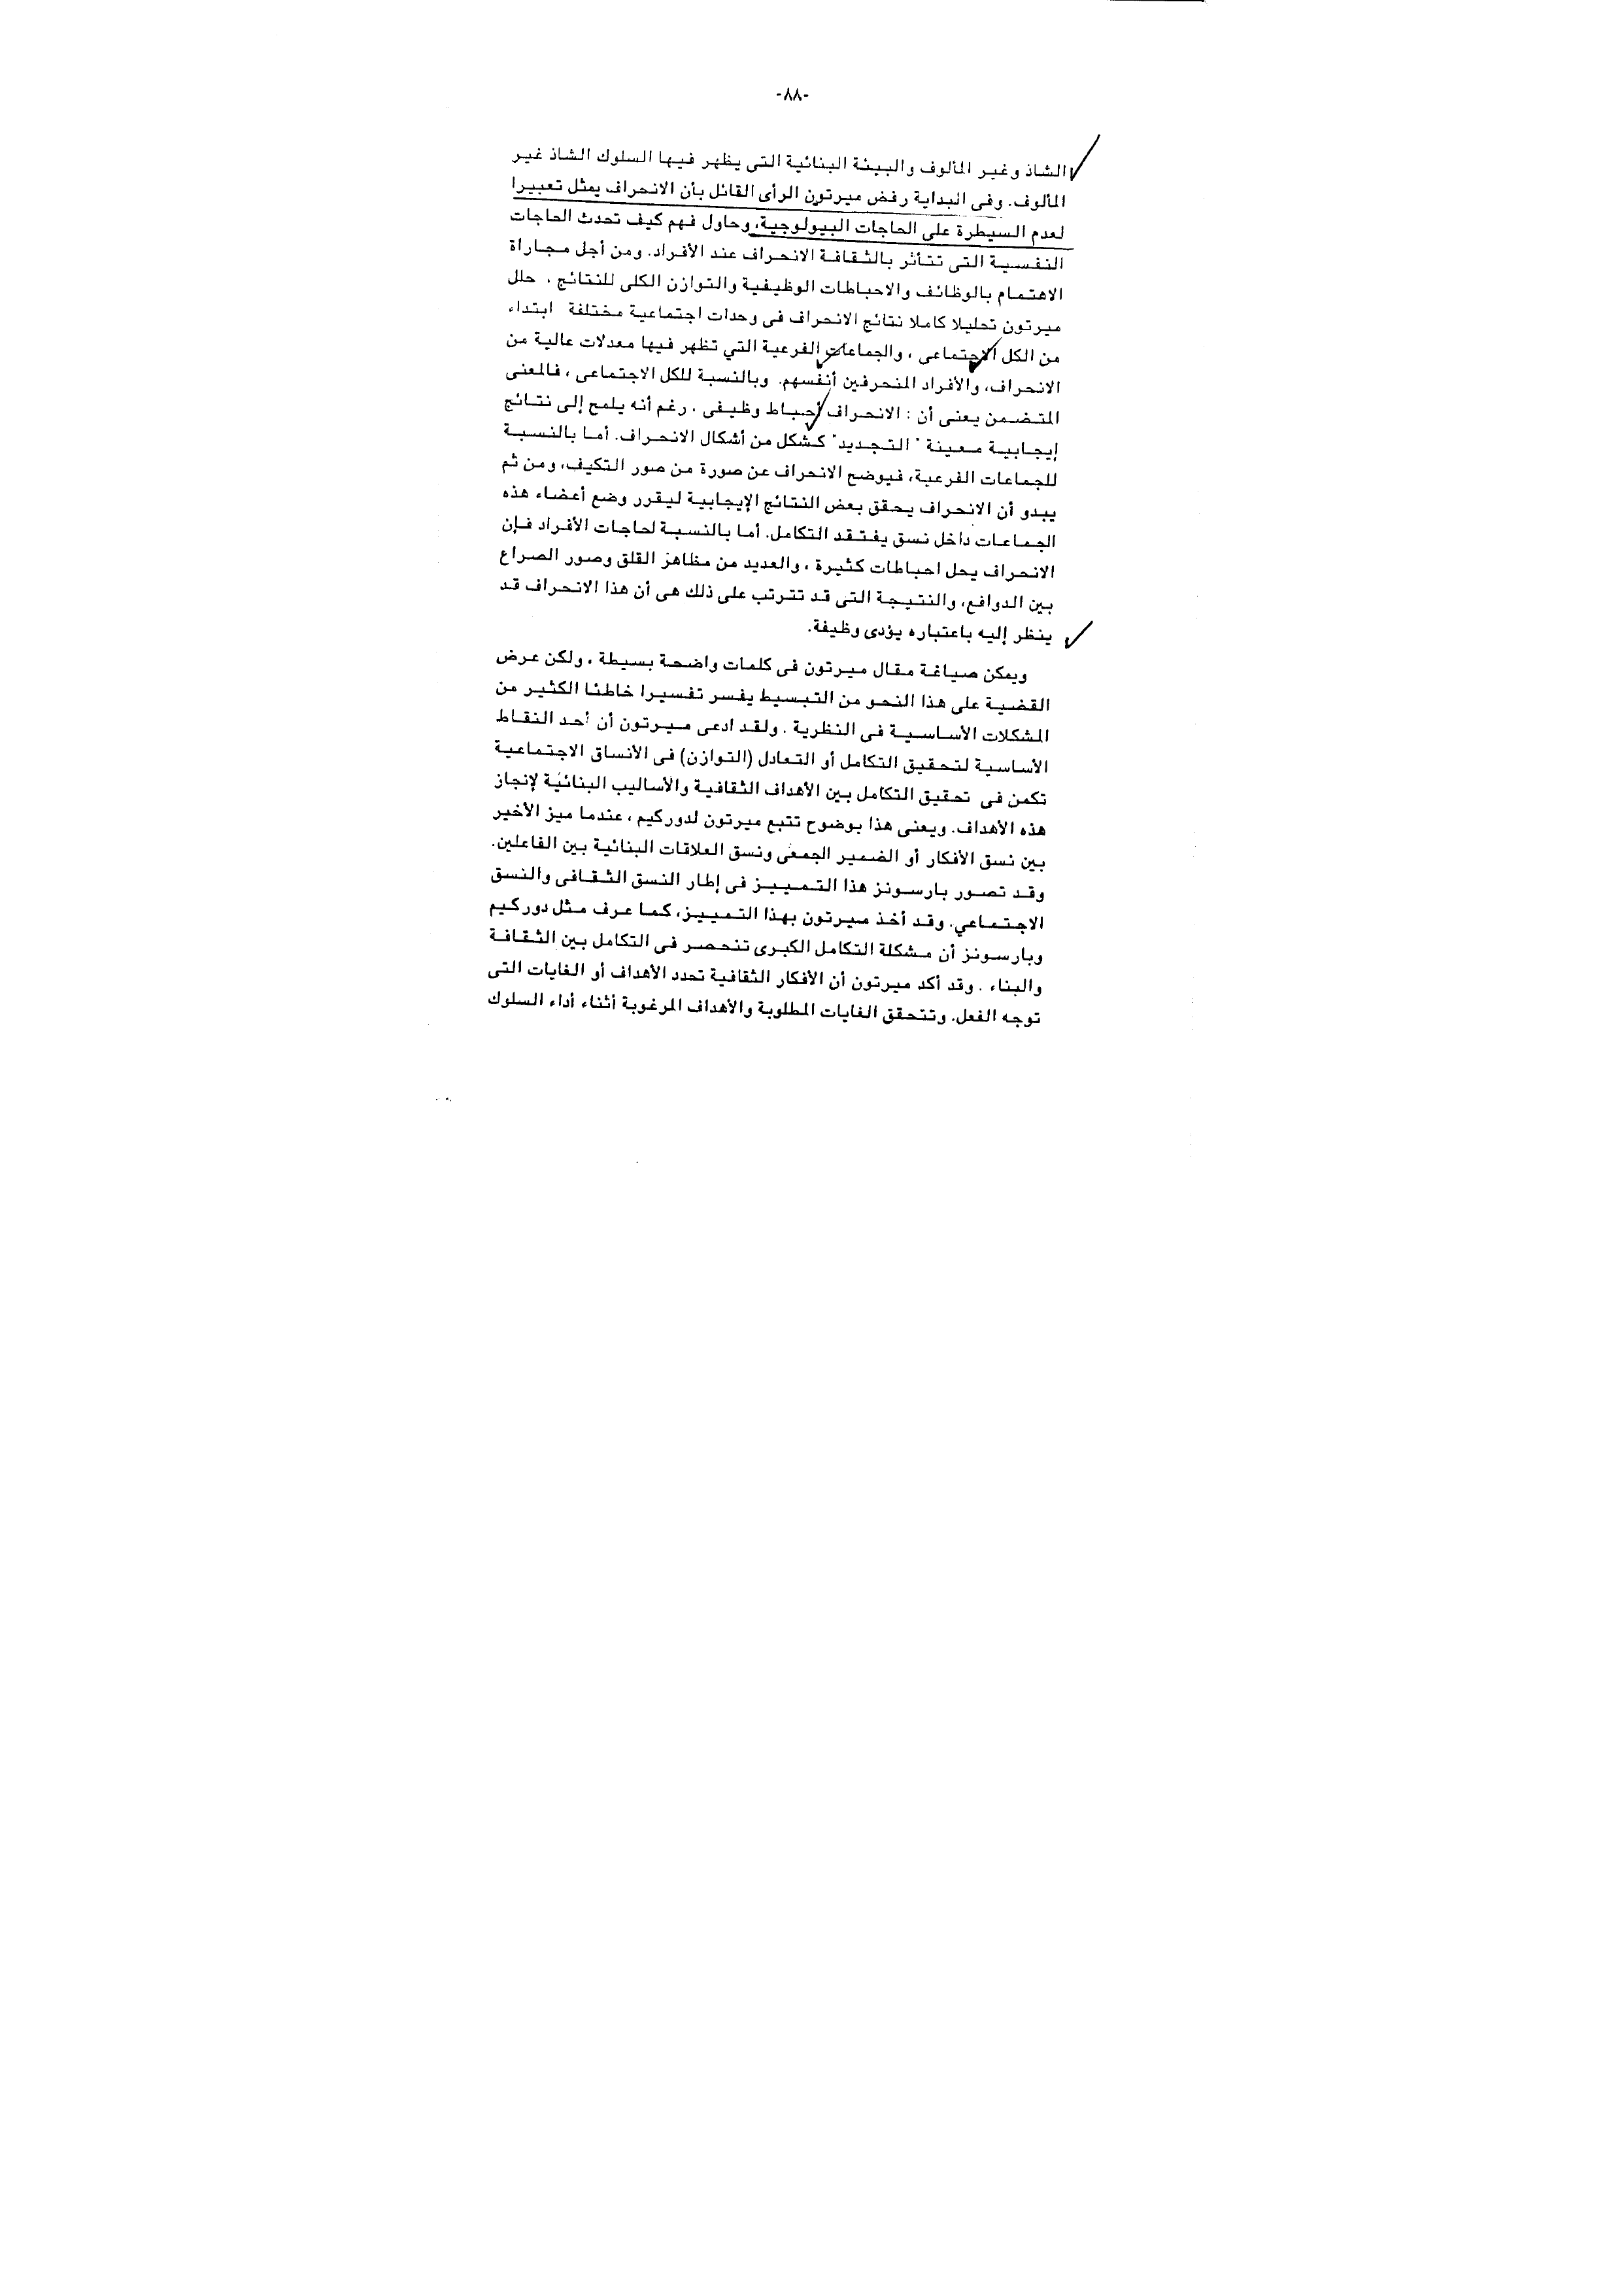 -٨٨-
الشاذ وغير المألوف والبيئة البنائية التى يظهر فيها السلوك الشاذ غير
المألوف. وفى البداية رفض ميرتون الرأى القائل بأن الانحراف يمثل تعبيرا
لعدم السيطرة على الحاجات البيولوجية، وحاول فهم كيف تحدث الحاجات
النفسية التى تتأثر بالثقافة الانحراف عند الأفراد. ومن أجل مجاراة
الاهتمام بالوظائف والاحباطات الوظيفية والتوازن الكلى للنتائج ، حلل
ميرتون تحليلا كاملا نتائج الانحراف فى وحدات اجتماعية مختلفة ابتداء
من الكل الاجتماعى ، والجماعات الفرعية التي تظهر فيها معدلات عالية من
الانحراف، والأفراد المنحرفين أنفسهم. وبالنسبة للكل الاجتماعى ، فالمعنى
المتضمن يعنى أن : الانحراف أحباط وظيفى ، رغم أنه يلمح إلى نتائج
إيجابية معينة "التجديد" كشكل من أشكال الانحراف. أما بالنسبة
للجماعات الفرعية، فيوضح الانحراف عن صورة من صور التكيف، ومن ثم
يبدو أن الانحراف يحقق بعض النتائج الإيجابية ليقرر وضع أعضاء هذه
الجماعات داخل نسق يفتقد التكامل. أما بالنسبة لحاجات الأفراد فإن
الانحراف يحل احباطات كثيرة ، والعديد من مظاهر القلق وصور الصراع
بين الدوافع، والنتيجة التى قد تترتب على ذلك هى أن هذا الانحراف قد
ينظر إليه باعتباره يؤدى وظيفة.
ويمكن صياغة مقال ميرتون فى كلمات واضحة بسيطة ، ولكن عرض
القضية على هذا النحو من التبسيط يفسر تفسيرا خاطئا الكثير من
المشكلات الأساسية فى النظرية . ولقد ادعى ميرتون أن أحد النقاط
الأساسية لتحقيق التكامل أو التعادل (التوازن) فى الأنساق الاجتماعية
تكمن فى تحقيق التكامل بين الأهداف الثقافية والأساليب البنائية لإنجاز
هذه الأهداف. ويعنى هذا بوضوح تتبع ميرتون لدوركيم ، عندما ميز الأخير
بين نسق الأفكار أو الضمير الجمعى ونسق العلاقات البنائية بين الفاعلين.
وقد تصور بارسونز هذا التمييز فى إطار النسق الثقافى والنسق
الاجتماعي. وقد أخذ ميرتون بهذا التمييز، كما عرف مثل دوركيم
وبارسونز أن مشكلة التكامل الكبرى تنحصر فى التكامل بين الثقافة
والبناء . وقد أكد ميرتون أن الأفكار الثقافية تحدد الأهداف أو الغايات التى
توجه الفعل. وتتحقق الغايات المطلوبة والأهداف المرغوبة أثناء أداء السلوك